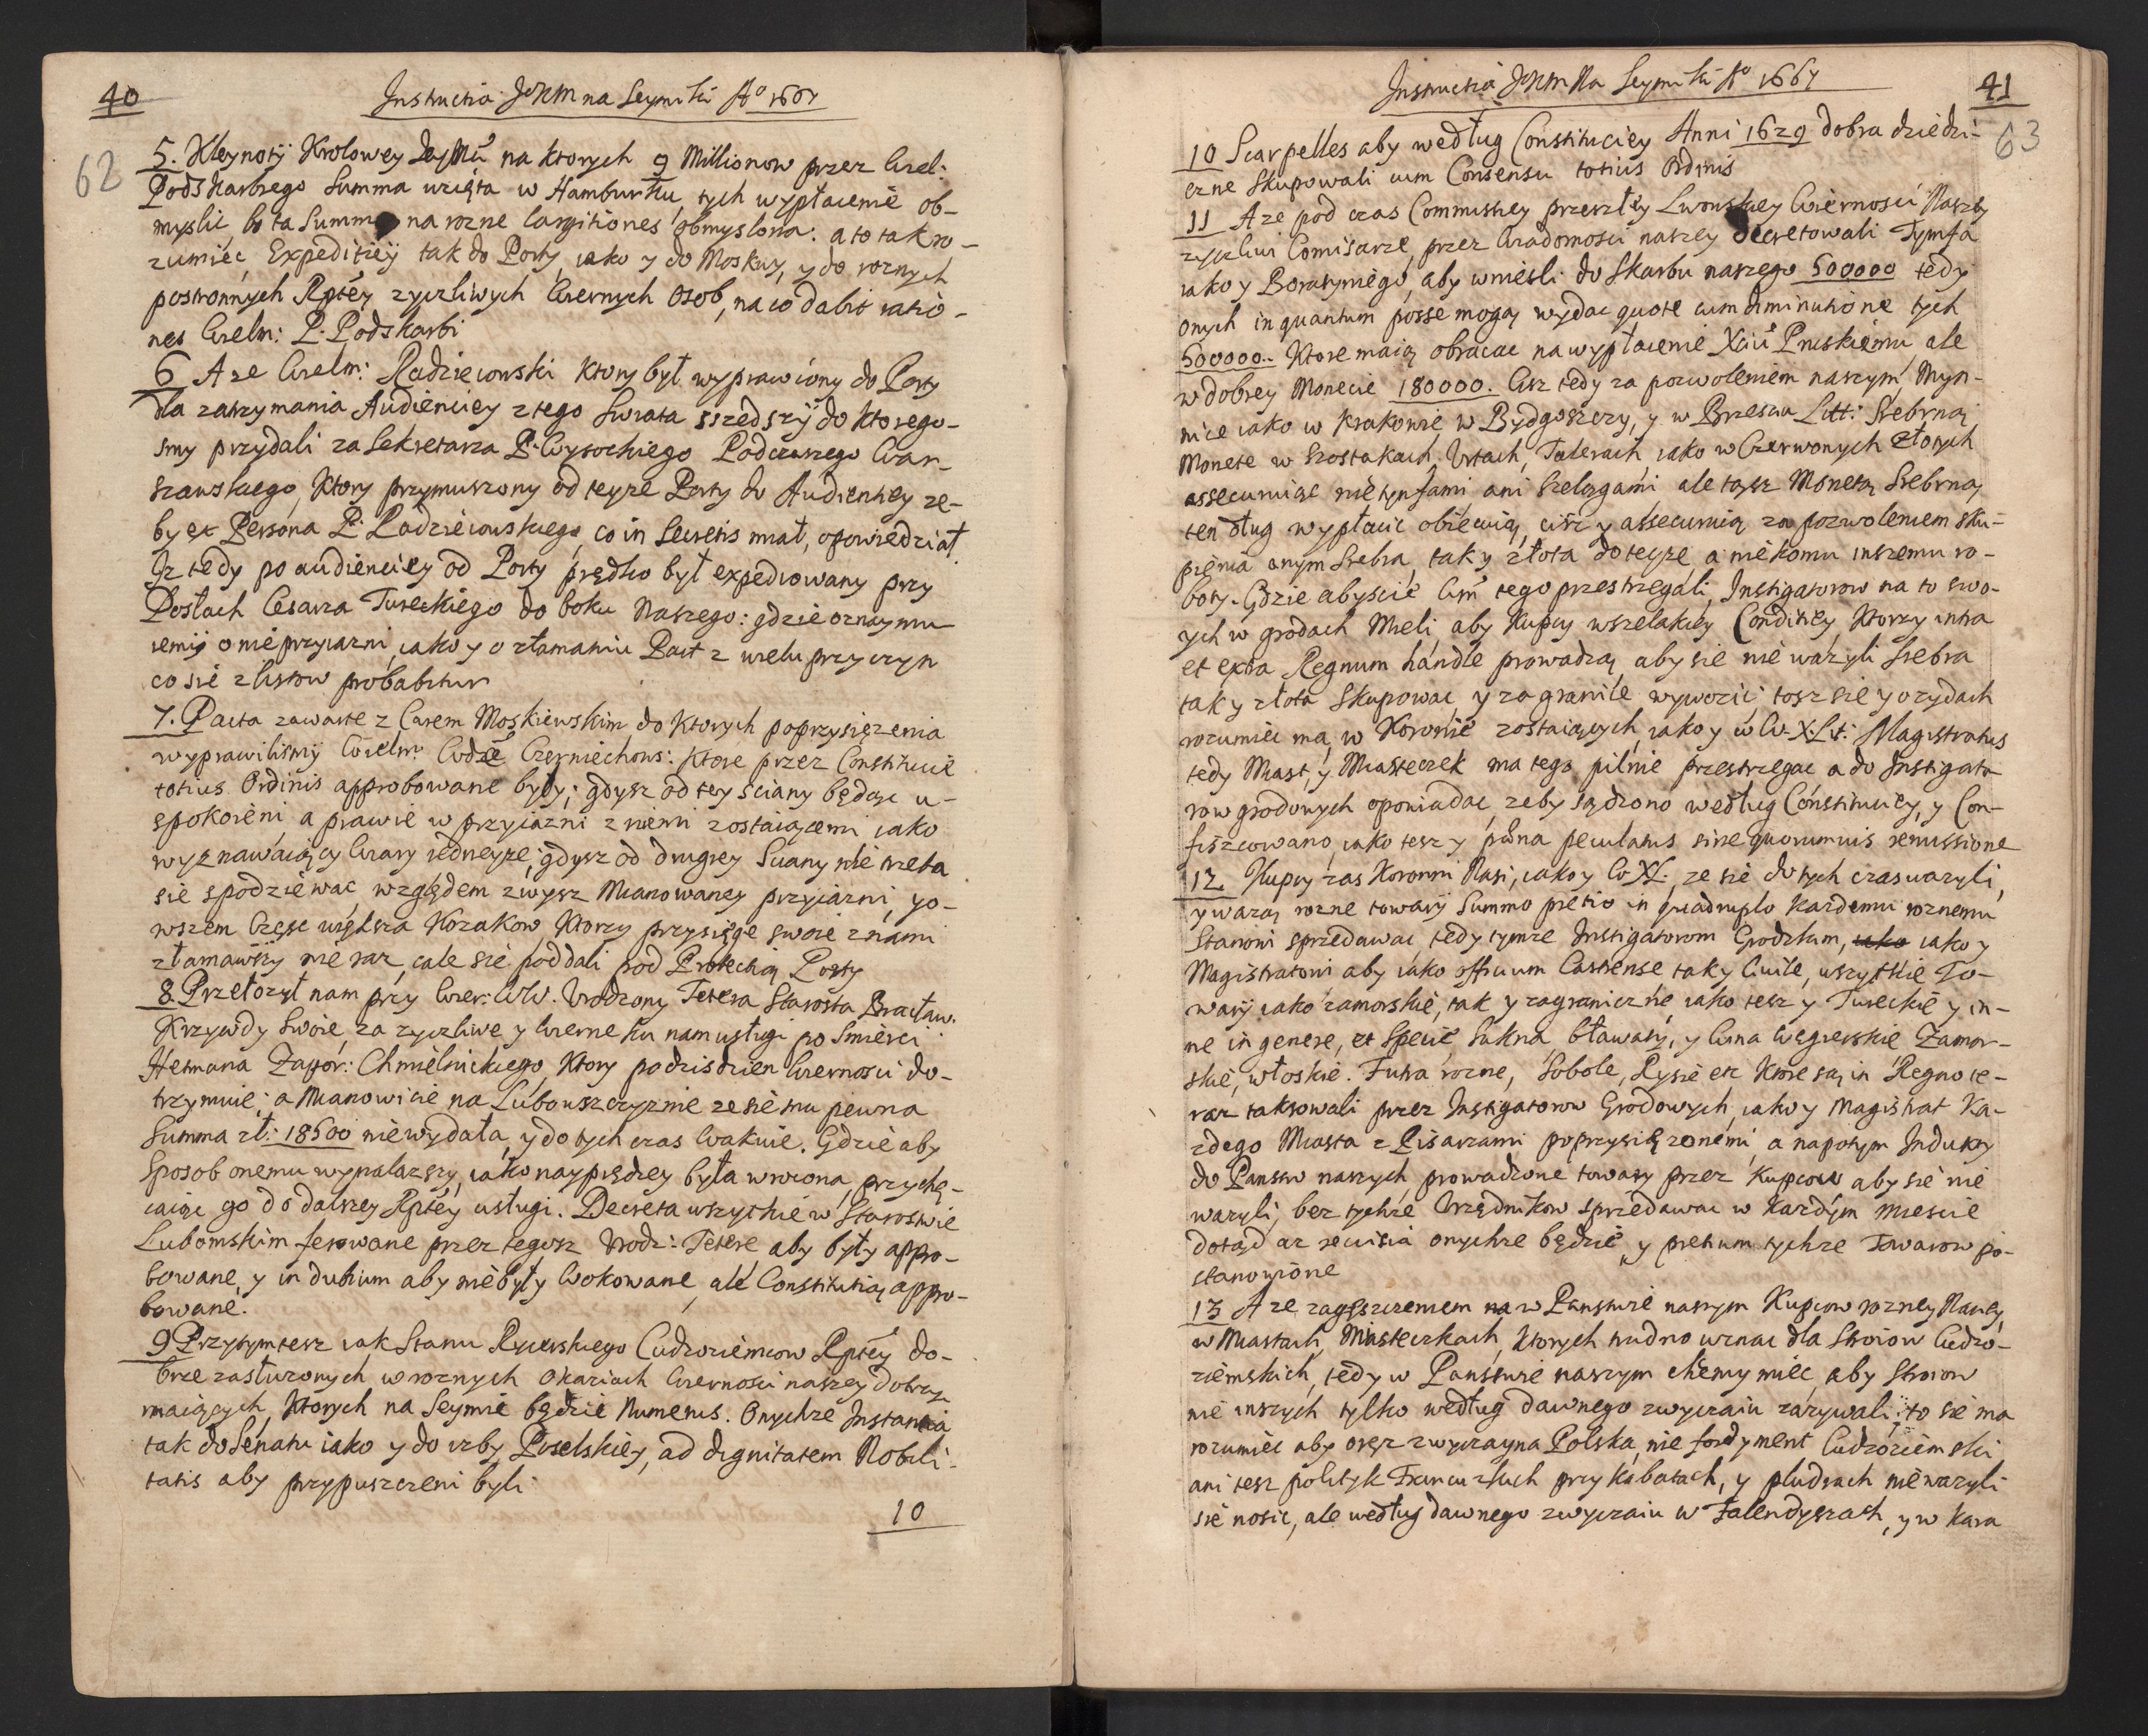 40
Instructia JKM na Seymiki Aº 1667
62
5. Kleynoty Krolowey JeyMci na ktorych 9 Millionow przez Wiel:
Podskarbiego Summa wzięta w Hamburku, tych wypłacenie ob-
myslić, bo ta Summa na rozne largitiones obmyslona: a to tak ro-
zumiec, Expeditiey tak do Porty, iako y do Moskwy, y do roznych
postronnych Rptey zyczliwych Wiernych Osob, na co dabit ratio-
nes Wielm: P. Podskarbi
6 A ze Wielm: Radzieiowski ktory był wyprawiony do Porty
dla zatrzymania Audienciey z tego Swiata sszedszy do ktorego-
smy przydali za Sekretarza P. Wysockiego Podczaszego War-
szawskiego, ktory przymuszony od teyze Porty do Audientiey ze-
by ex Persona P. Radzieiowskiego, co in Secretis miał, opowiedział
Jz tedy po audienciey od Porty prędko był expediowany przy
Posłach Cesarza Tureckiego do boku Naszego: gdzie oznaymu-
iemy o nieprzyiazni, iako y o złamaniu Pact z wielu przyczyn
co sie z listow probabitur
7. Pacta zawarte z Carem Moskiewskim do ktorych poprzysięzenia
wyprawilismy Wielm: Wodze Czerniechows: ktore przez Constitucie
totius Ordinis approbowane były; gdysz od tey sciany będąc u-
spokoieni a prawie w przyiazni z niemi zostaiącemi iako
wyznawaiący Wiary iedneyze; gdysz od drugiey Sciany nie trzeba
sie spodziewac, względem zwysz Mianowaney przyiazni, yo-
wszem Częsc większa Kozakow ktorzy przysięge swoie z nami
złamawszy nie raz, cale sie poddali pod Protectią Porty
8. Przełozył nam przy Wier: WW. Urodzony Tetera Starosta Bracław.
Krzywdy Swoie, za zyczliwe y Wierne ku nam usługi po Smierci
Hetmana Zapor: Chmielnickiego, ktory podzisdzien Wiernosci do-
trzymuie; a Mianowicie na Lubowszczyznie ze sie mu pewna
Summa zł: 18500 niewydała, y do tych czas Wakuie. Gdzie aby
Sposob onemu wynalazszy, iako nayprędzey była wrocona, przychę-
caiąc go do dalszey Rptey usługi. Decreta wszytkie w Starostwie
Lubomskim ferowane przez tegosz Urodz: Tetere, aby były appro-
bowane, y in dubium aby niebyły Wokowane, ale Constitutią appro-
bowane.
9 Przytym tesz iak Stanu Rycerskiego Cudzoziemcow Rptey do-
brze zasłuzonych w roznych Okaziach Wiernosci naszey dotrzy-
maiących, ktorych na Seymie będzie Numerus. Onychze Instantia
tak do Senatu iako y do izby Poselskiey, ad dignitatem Nobili-
tatis aby przypuszczeni byli
10
Instructia JKM Na Seymiki Aº 1667
41
63
10 Scarpelles aby według Constituciey Anni 1629 dobra dziedzi-
czne Skupowali cum Consensu totius Ordinis
11 A ze pod czas Commissiey przeszłey Lwowskiey Wiernosci Naszey
zyczliwi Comisarze, przez Wiadomosci naszey decretowali Tymfa
iako y Boratyniego, aby wniesli do Skarbu naszego 500000 tedy
onych inquantum posse mogą wydac quote cum diminutione tych
500000.. ktore maią obracac na wypłacenie Xciu Pruskiemu, ale
w dobrey Monecie 180000. Cisz tedy za pozwoleniem naszym, Myn-
nice iako w Krakowie w Bydgoszczy, y w Brzesciu Litt: Srebrną
Monete w Szostakach Urtach, Talerach, iako w Czerwonych złotych
assecuruiąc nie tynfami ani szelągami ale tąsz Monetą Srebrną
ten dług wypłacic obiecuią, cisz y assecuruią za pozwoleniem sku-
pienia onym Srebra, tak y złota do teyze, a niekomu inszemu ro-
boty. Gdzie abyscie Wm tego przestrzegali, Instigatorow na to swo-
ych w grodach Mieli, aby Kupcy wszelakiey Conditiey, ktorzy intra
et extra Regnum handle prowadzą, aby sie nie wazyli Srebra
tak y złota Skupowac, y za granice wywozic, tosz sie y o zydach
rozumiec ma, w Koronie zostaiących, iako y w W. X. Lit: Magistratus
tedy Miast, y Miasteczek ma tego pilnie przestrzegac a do Instigato-
row grodowych opowiadac, zeby sądzono według Constituciey, y Con-
fiszcowano, iako tesz y pœna peculatus sine quorumvis remissione
12 Kupcy zas Koronni Nasi, iako y W XL. ze sie do tych czas wazyli,
y wazą rozne towary Summo pretio in quadruplo kazdemu roznemu
Stanowi sprzedawac, tedy tymze Instigatorom Grodzkim, iako iako y
Magistratowi aby iako officium Castrense, tak y Civile, wszytkie To-
wary iako zamorskie, tak y zagraniczne iako tesz y Tureckie y in-
ne in genere, et Specie Sukna, bławaty, y Wina Węgierskie Zamor-
skie, włoskie. Futra rozne, Sobole, Rysie etc ktore są in Regno te-
raz taksowali przez Instigatorow Grodowych, iako y Magistrat Ka-
zdego Miasta z Pisarzami poprzysięzonemi, a napotym Indukty
do Panstw naszych prowadzone towary przez Kupcow aby sie nie
wazyli, bez tychze Urzędnikow sprzedawac w kazdym miescie
dotąd az rewisia onychze będzie y pretium tychze Towarow po-
stanowione
13 A ze zagęszczeniem na w Panstwie naszym Kupcow rozney Naciey,
w Miastach, Miasteczkach, ktorych trudno uznac dla Stroiow Cudzo-
ziemskich, tedy w Panstwie naszym chcemy miec, aby Stroiow
nie inszych tylko według dawnego zwyczaiu zazywali: to sie ma
rozumiec aby oręz zwyczayna Polska, nie fordyment Cudzoziemski
ani tesz polityk Francuzkich przy kabatach, y pludrach niewazyli
sie nosic, ale według dawnego zwyczaiu w Falendyszach, y w kara